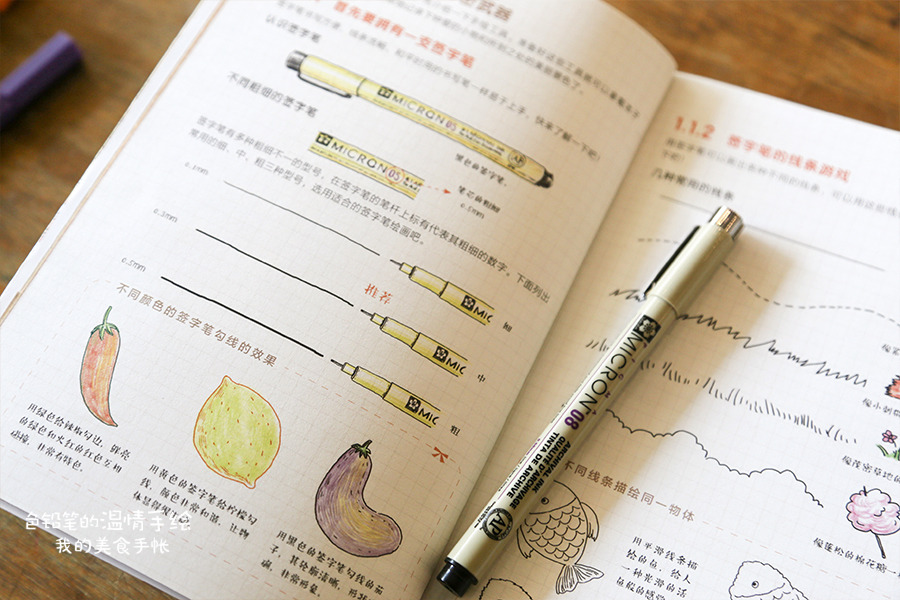 首先要拥有一支签字笔
认识签字笔
MICRON 05
不同粗细的签字笔
MICRON 05
0.5mm
签字笔有多种粗细不一的型号，在签字笔的笔杆上标有代表其粗细的数字。下面列出
常用的细、中、粗三种型号，选用适合的签字笔绘画吧。
0.1mm
0.3mm
0.5mm
MIC
细
推荐
MIC
中
MIC
粗
不同颜色的签字笔勾线的效果
用绿色给辣椒勾边，鲜亮
的绿色和火红的红色互相
碰撞，非常有特色。
用黄色的签字笔给柠檬勾
线，颜色非常和谐，让物
用黑色的签字笔勾线的茄
子，其轮廓清晰，
1.1.2 签字笔的线条游戏
几种常用的线条
不同线条描绘同一物体
用平滑线条描
绘的鱼，给人
一种光滑的活
鱼般的感觉
MICRON 08
ARCHIVAL INK
QUALITE D'ARCHIVE
TINTA DE ARCHIVE
AP
色铅笔的温情手绘
我的美食手帐